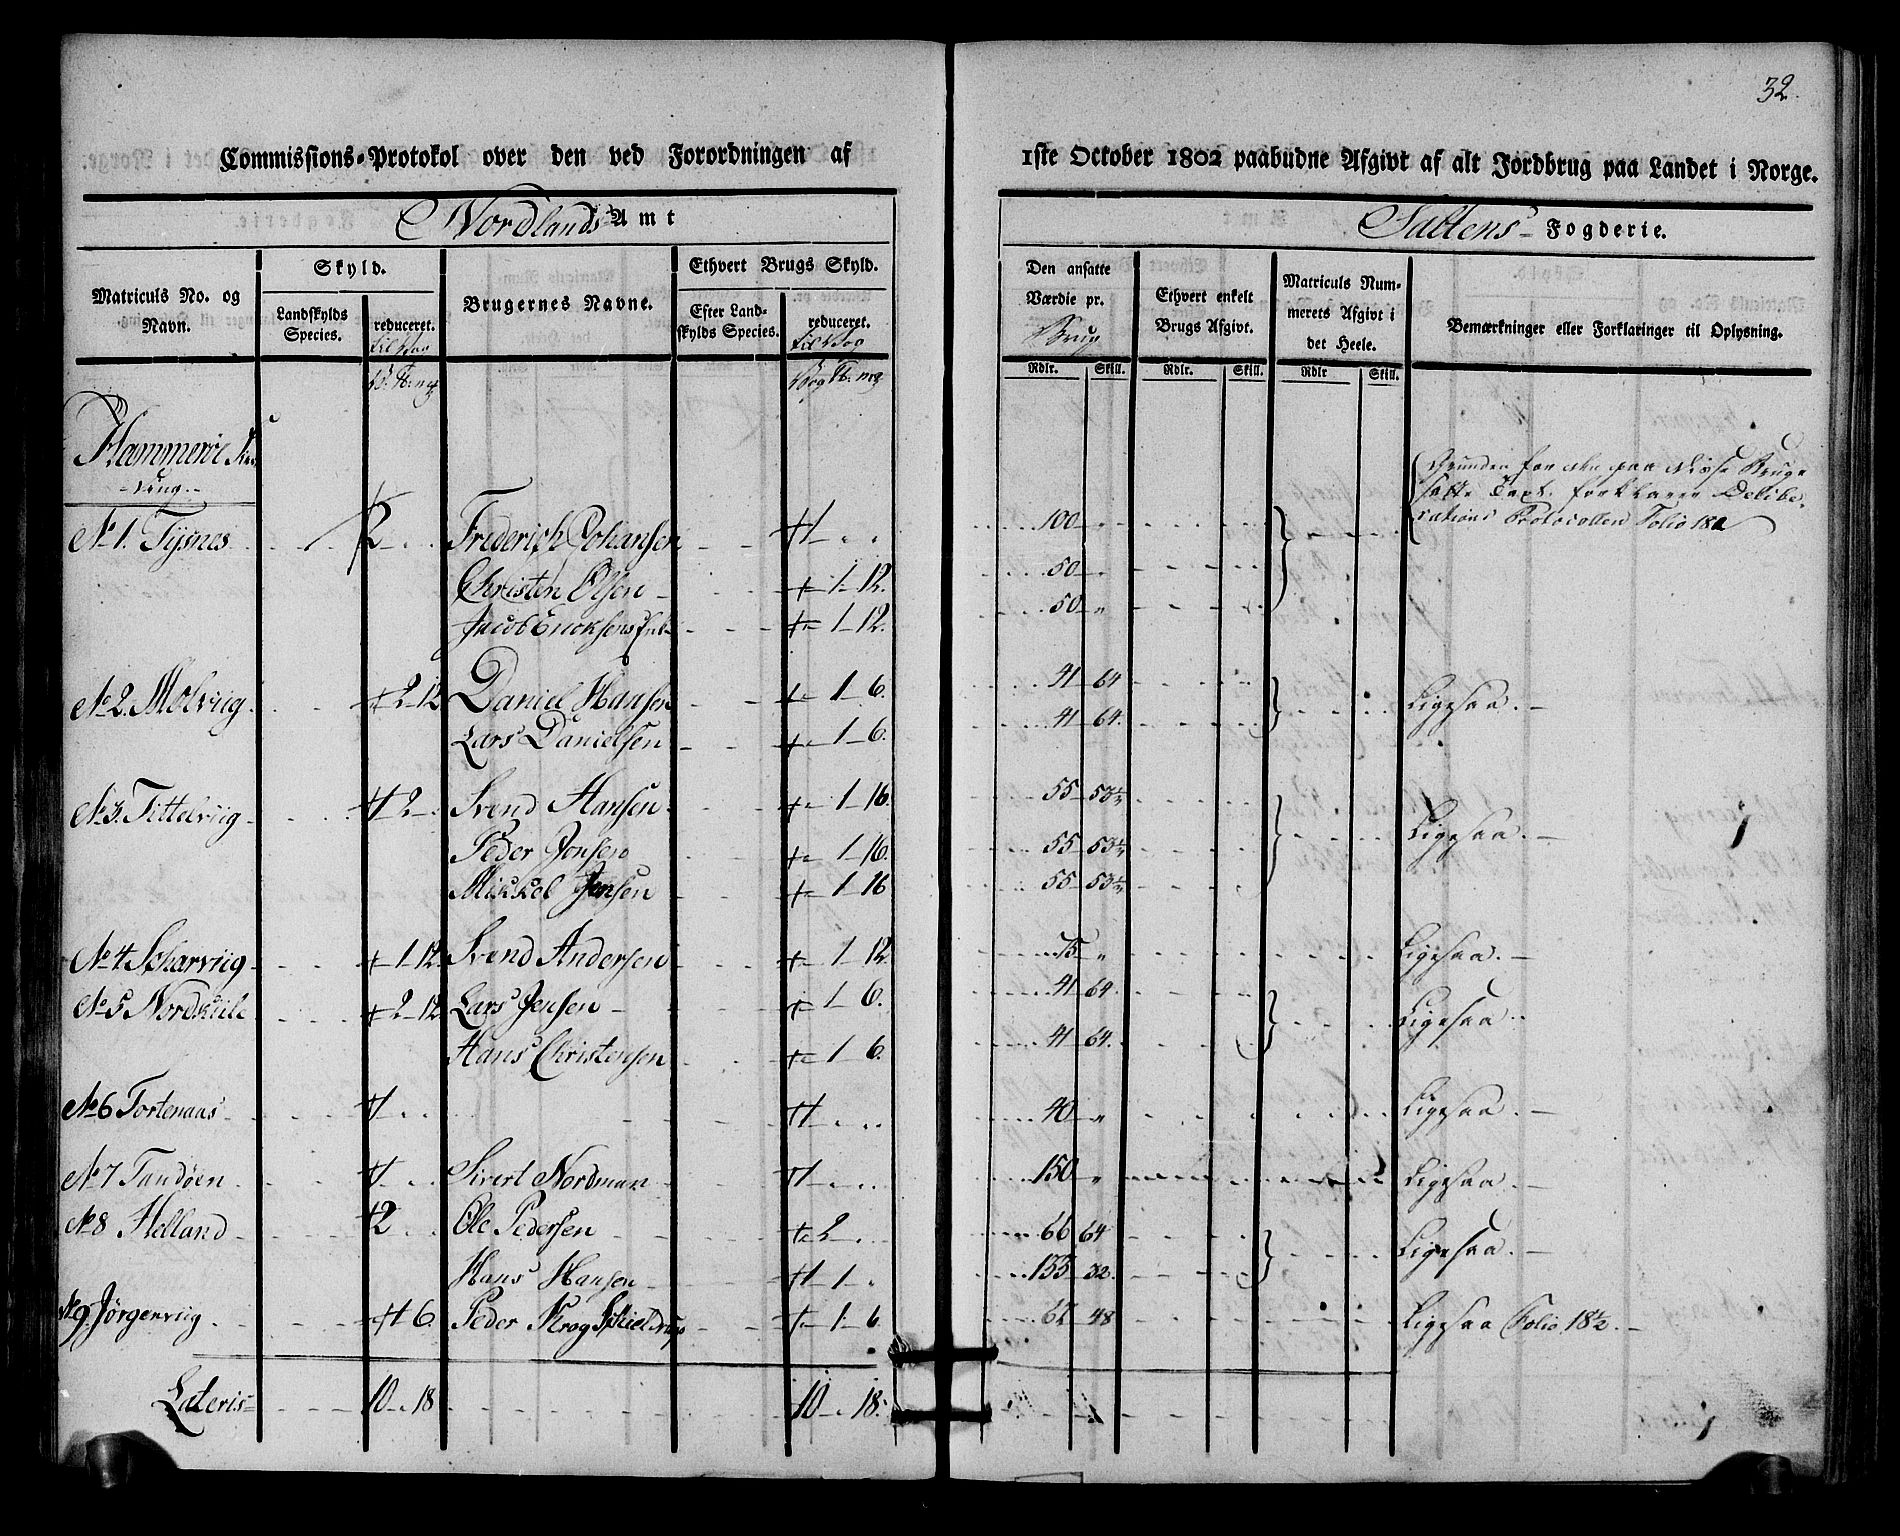 32.
Commissions-Protokol over den ved Forordningen af 1ste October 1802 paabudne Afgivt af alt Jordbrug paa Landet i Norge.
Nordlands Amt
Saltens Fogderie.
Matriculs No. og Navn.
Skyld.
Landskylds Species.
reduceret.
til Vog
Brugernes Navne.
Ethvert Brugs Skyld.
Efter Landskylds Species.
reduceret.
til Vog
Den ansatte Værdie pr.
Brug
Ethvert enkelt Brugs Afgivt.
Matriculs Nummerets Afgivt i det Heele.
Bemærkninger eller Forklaringer til Oplysning.
Rdlr. Skill. Rdlr. Skill. Rdlr Skill.
Hammerøe
Grunden for den paa disse Bruge
satte Taxt, forklarer Delibe-
rations Protocollen Folio 182
No 1. Tysnes 2 Frederich Johansen 1 100 "
Christen Olsen 1 12 50 "
Jacob Ericksens 1 12. 50 "
No 2. Molviig 2 12 Daniel Hansen 1 6. 41 64 Ligesaa.
Lars Danielsen 1 6. 41 64.
No 3. Tittelviig 2 Svend Hansen 1 16. 55 53½ Ligesaa.
Peder Jonsen 1 16. 55 53½
Mikkel Jensen 1 16 55 53½
No 4 Scharviig 1 12. Svend Andersen 1 12. 75 " Ligesaa.
No 5 Nordskiile 2 12 Lars Jensen 1 6. 41 64. Ligesaa.
Hans Christensen 1 6. 41 64.
No 6 Tortenaas 1 1 40 " Ligesaa.
No 7 Tandøen 1 Sivert Nordman 1 150 " Ligesaa.
No 8 Helland 2 Ole Pedersen 2 66 64 Ligesaa.
Hans Hansen 1 133 32.
No 9. Jørgenviig 6 Peder Krog Schieldrup 1 6 62 48 Ligesaa Folio 182.
Lateris 10 18 10 18.